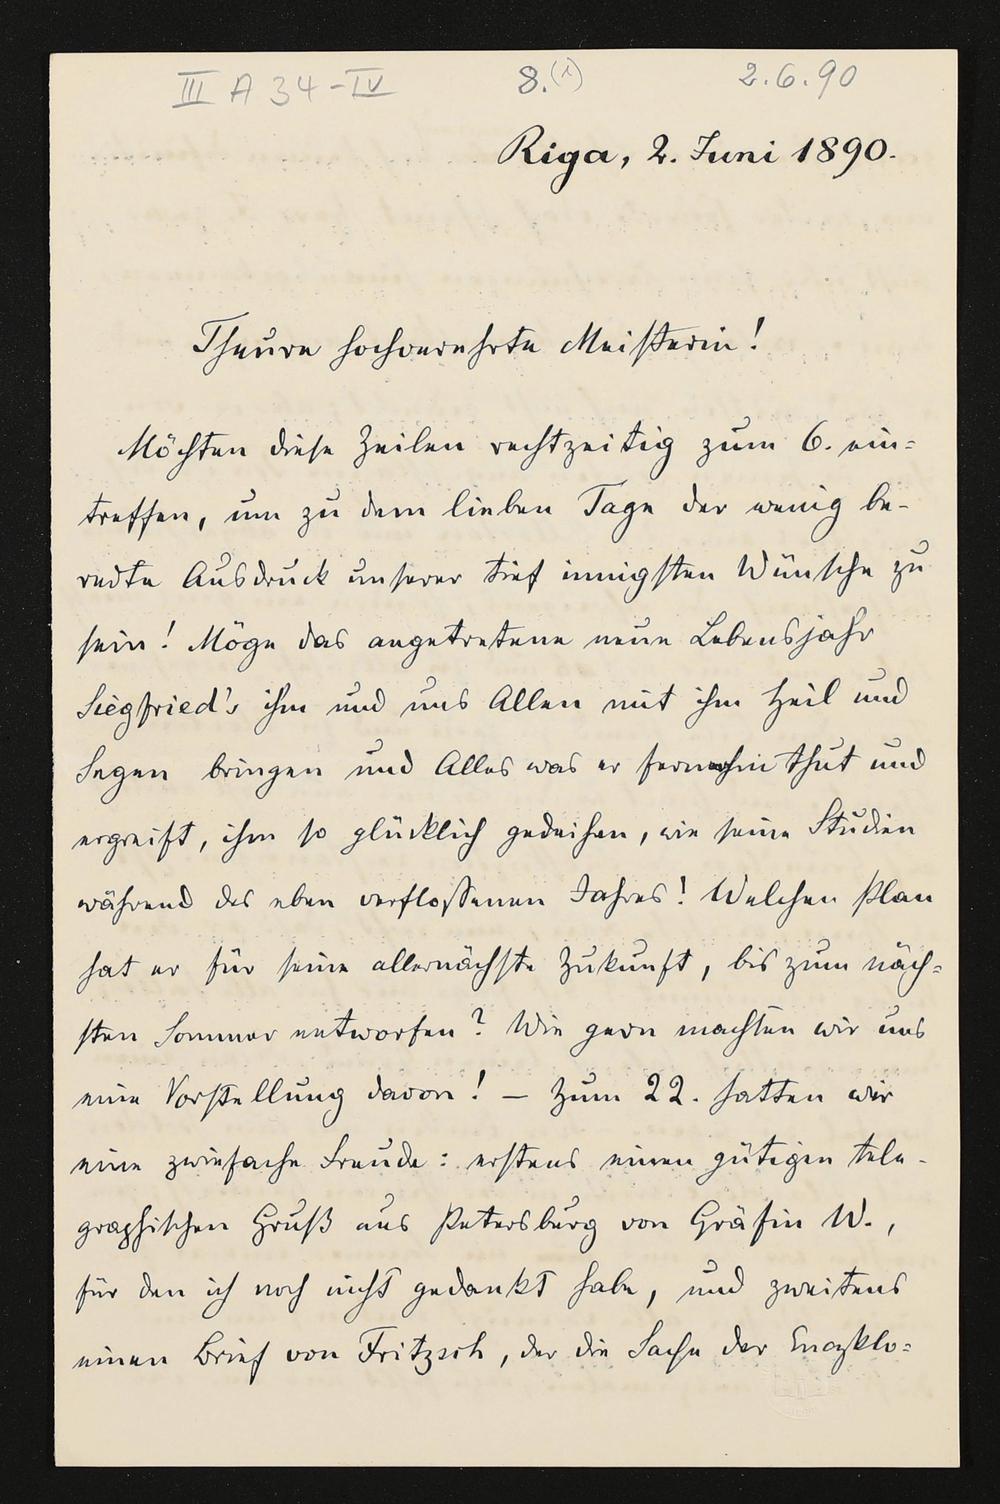 III A 34-IV 8.(1) 2.6.90
Riga, 2. Juni 1890.
Theure hochverehrte Meisterin!
Möchten diese Zeilen rechtzeitig zum 6. ein-
treffen, um zu dem lieben Tage der wenig be-
redte Ausdruck unserer tief innigsten Wünsche zu
sein! Möge das angetretene neue Lebensjahr
Siegfried's ihm und uns Allen mit ihm Heil und
Segen bringen und Alles was er fernerhin thut und
ergreift, ihm so glücklich gedeihen, wie seine Studien
während des eben verflossenen Jahres! Welchen Plan
hat er für seine allernächste Zukunft, bis zum näch-
sten Sommer entworfen? Wie gern machten wir uns
eine Vorstellung davon! – Zum 22. hatten wir
eine zwiefache Freude: erstens einen gütigen tele-
graphischen Gruß aus Petersburg von Gräfin W.,
für den ich noch nicht gedankt habe, und zweitens
einen Brief von Fritzsch, der die Sache der Encyklo-